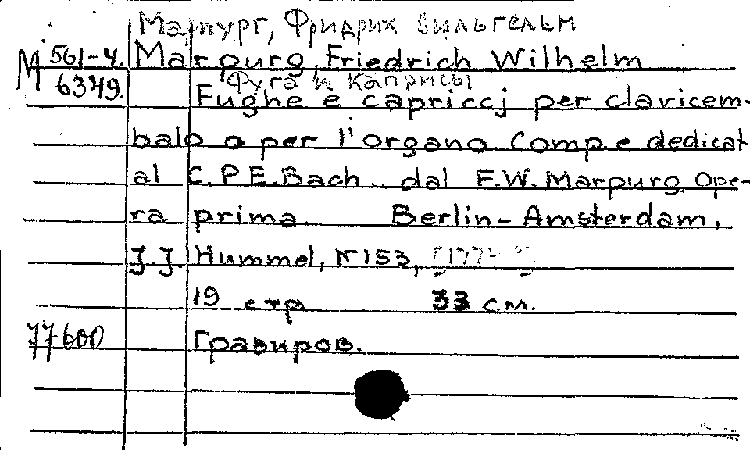 Марпург, Фридрих Вильгельм
М 561-4. Marpurg, Friedrich Wilhelm
Фуга и Каприсы
6349. Fughe e capriccj per clavicem-
balo o per l'organo Comp. e dedicat
al C.P.E. Bach dal F.W. Marpurg Ope-
ra prima Berlin-Amsterdam,
J.J. Hummel, N 153,
19 стр 33 см.
77600 Гравиров.